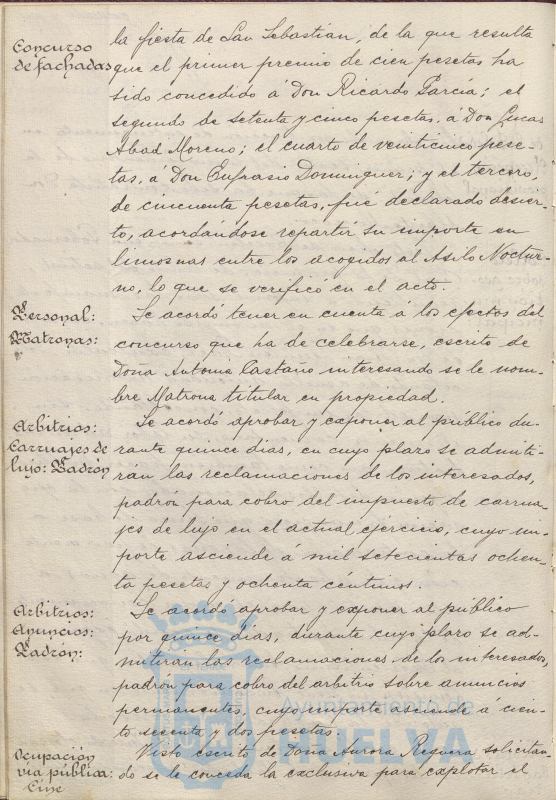 Concurso
de fachadas
la fiesta de San Sebastian, de la que resulta
que el primer premio de cien pesetas ha
sido concedido á Don Ricardo García; el
segundo de setenta y cinco pesetas, á Don Lucas
Abad Moreno; el cuarto de veinticinco pese-
tas, á Don Eufrasio Dominguez; y el tercero,
de cincuenta pesetas, fué declarado desier-
to, acordandose repartir su importe en
limosnas entre los acogidos al Asilo Noctur-
no, lo que se verificó en el acto.
Personal:
Matronas:
Se acordó tener en cuenta á los efectos del
concurso que ha de celebrarse, escrito de
Doña Antonia Castaño interesando se le nom-
bre Matrona titular en propiedad.
Arbitrios:
Carruajes de
lujo: Padrón
Se acordó aprobar y exponer al público du-
rante quince dias, en cuyo plazo se admiti-
rán las reclamaciones de los interesados,
padrón para cobro del impuesto de carrua-
jes de lujo en el actual ejercicio, cuyo im-
porte asciende a mil setecientas ochen-
ta pesetas y ochenta céntimos.
Arbitrios:
Anuncios:
Padrón:
Se acordó aprobar y exponer al público
por quince dias, durante cuyo plazo se ad-
mitirán las reclamaciones de los interesados,
padrón para cobro del arbitrio sobre anuncios
permanentes, cuyo importe asciende a cien-
to sesenta y dos pesetas.
Ocupación
via pública:
Cine
Visto escrito de Doña Aurora Reguera solicitan-
do se le conceda la exclusiva para explotar el
Ayuntamiento de
HUELVA